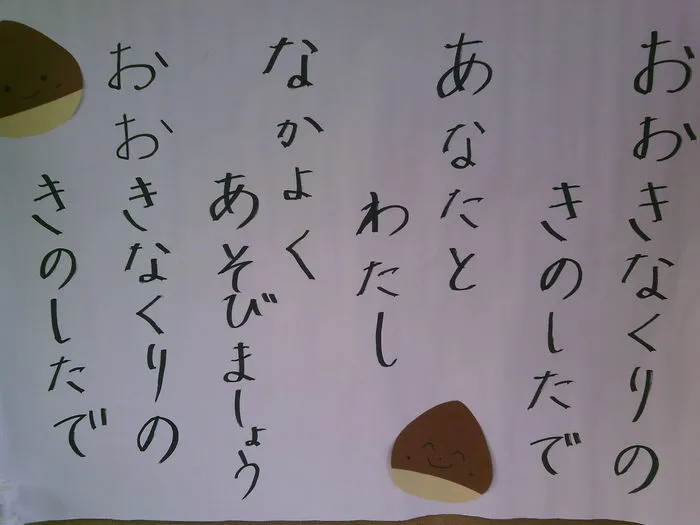 おおきなくりの
きのしたで
あなたと
わたし
なかよく
あそびましょう
おおきなくりの
きのしたで